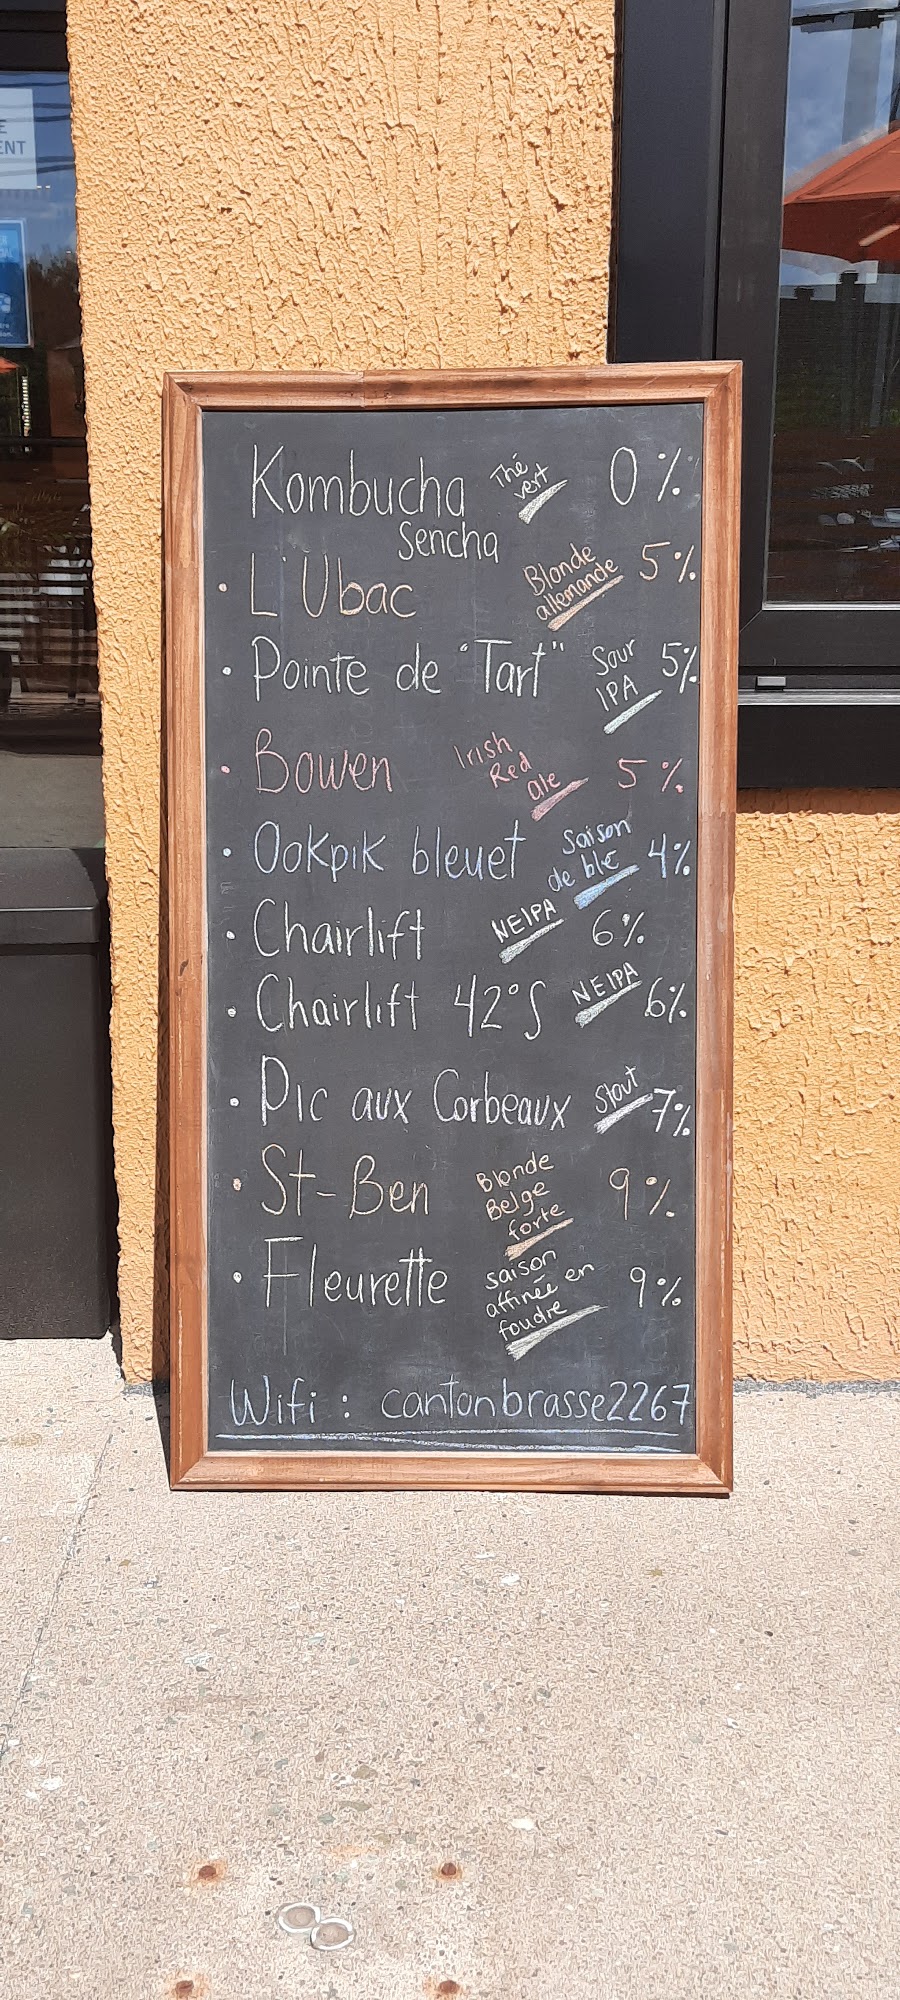 E
ENT
Kombucha Thé vert 0%
Sencha
• L'Ubac Blonde allemande 5%
• Pointe de "Tart" Sour IPA 5%
• Bowen Irish Red ale 5%
• Ookpik bleuet Saison de blé 4%
• Chairlift NEIPA 6%
• Chairlift 42°S NEIPA 6%
• Pic aux Corbeaux Stout 7%
• St-Ben Blonde Belge forte 9%
• Fleurette saison affinée en foudre 9%
Wifi : cantonbrasse2267